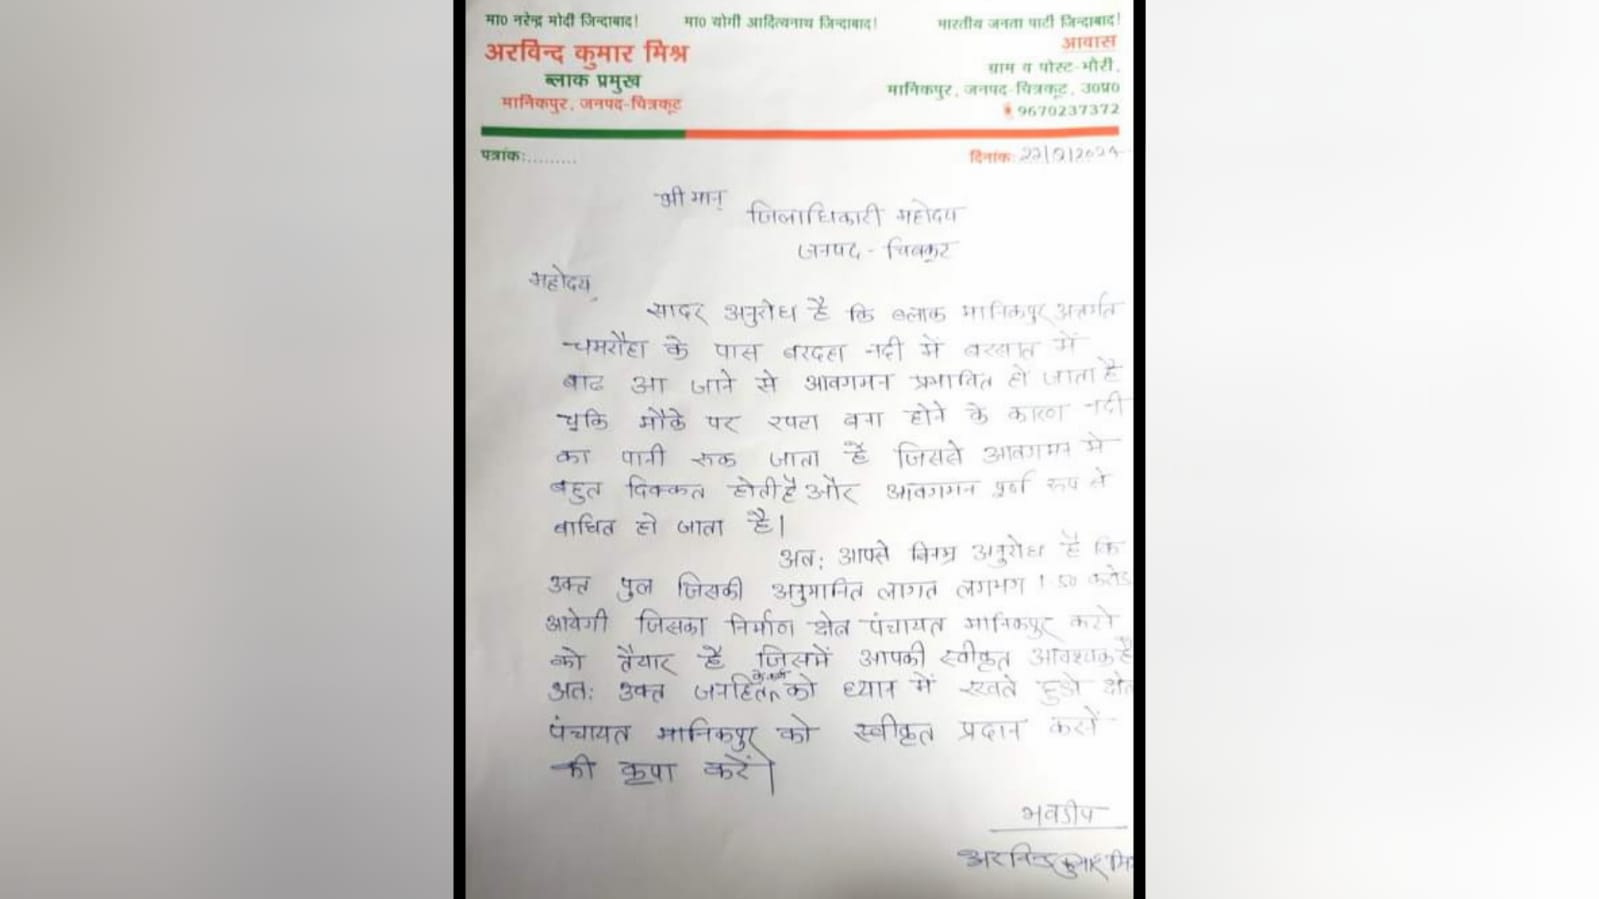 मा0 नरेन्द्र मोदी जिन्दाबाद! मा0 योगी आदित्यनाथ जिन्दाबाद! भारतीय जनता पार्टी जिन्दाबाद!
अरविन्द कुमार मिश्र
ब्लाक प्रमुख
मानिकपुर, जनपद-चित्रकूट
आवास
ग्राम व पोस्ट-भौंरी,
मानिकपुर, जनपद-चित्रकूट, उ0प्र0
9670237372
पत्रांक:......... दिनांक:
श्रीमान्
जिलाधिकारी महोदय
जनपद - चित्रकूट
महोदय,
सादर अनुरोध है कि ब्लाक मानिकपुर अन्तर्गत
चमरौहा के पास बरदहा नदी में बरसात में
बाढ आ जाने से आवगमन प्रभावित हो जाता है
चूकि मौके पर रपटा बना होने के कारण नदी
का पानी रुक जाता है जिससे आवगमन मे
बहुत दिक्कत होती है और आवगमन पूर्ण रूप से
बाधित हो जाता है।
अत: आपसे विनम्र अनुरोध है कि
उक्त पुल जिसकी अनुमानित लागत लगभग 1.50 करोड
आयेगी जिसका निर्माण क्षेत्र पंचायत मानिकपुर कराने
को तैयार है जिसमें आपकी स्वीकृत आवश्यक है
अत: उक्त जनहित को ध्यान में रखते हुओ क्षेत्र
पंचायत मानिकपुर को स्वीकृत प्रदान करनें
की कृपा करें।
भवदीय
अरविन्द कुमार मि